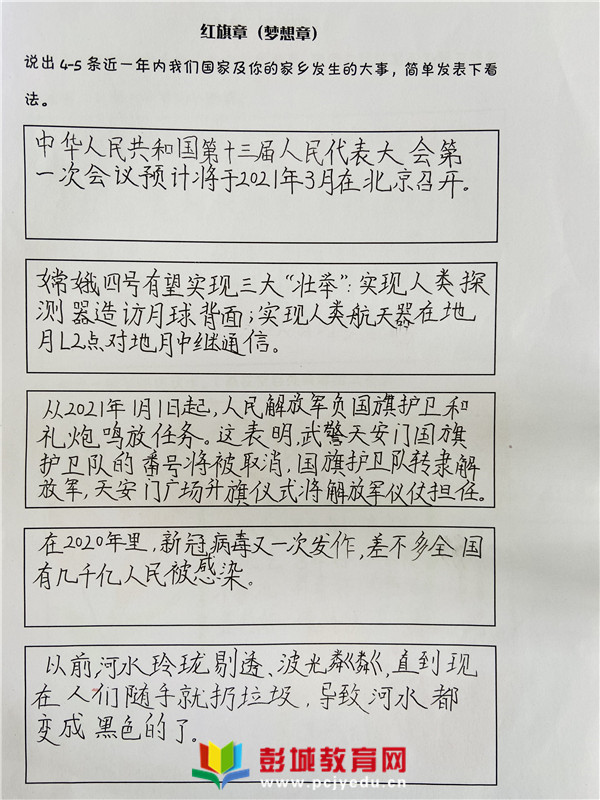 红旗章（梦想章）
说出4-5条近一年内我们国家及你的家乡发生的大事，简单发表下看
法。
中华人民共和国第十三届人民代表大会第
一次会议预计将于2021年3月在北京召开。
嫦娥四号有望实现三大“壮举”：实现人类探
测器造访月球背面；实现人类航天器在地
月L2点对地月中继通信。
从2021年1月1日起，人民解放军负国旗护卫和
礼炮鸣放任务。这表明，武警天安门国旗
护卫队的番号将被取消，国旗护卫队转隶解
放军，天安门广场升旗仪式将解放军仪仗担任。
在2020年里，新冠病毒又一次发作，差不多全国
有几千亿人民被感染。
以前河水玲珑剔透、波光粼粼，直到现
在人们随手就扔垃圾，导致河水都
变成黑色的了。
彭城教育网
www.pcjyedu.cn